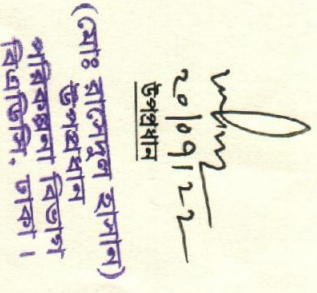 ২০/০৭/২২
উপপ্রধান
(মোঃ রাসেদুল হাসান)
উপপ্রধান
পরিকল্পনা বিভাগ
বিএডিসি, ঢাকা।